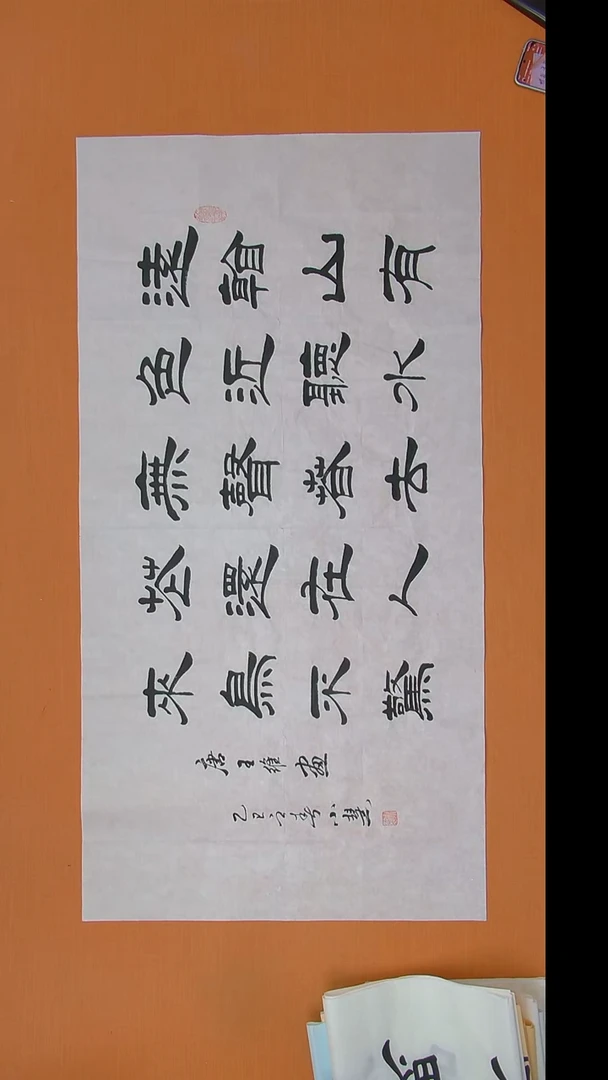 遠看山有
色近聽水
無聲春去
花還在人
來鳥不驚
唐王維畫
乙巳